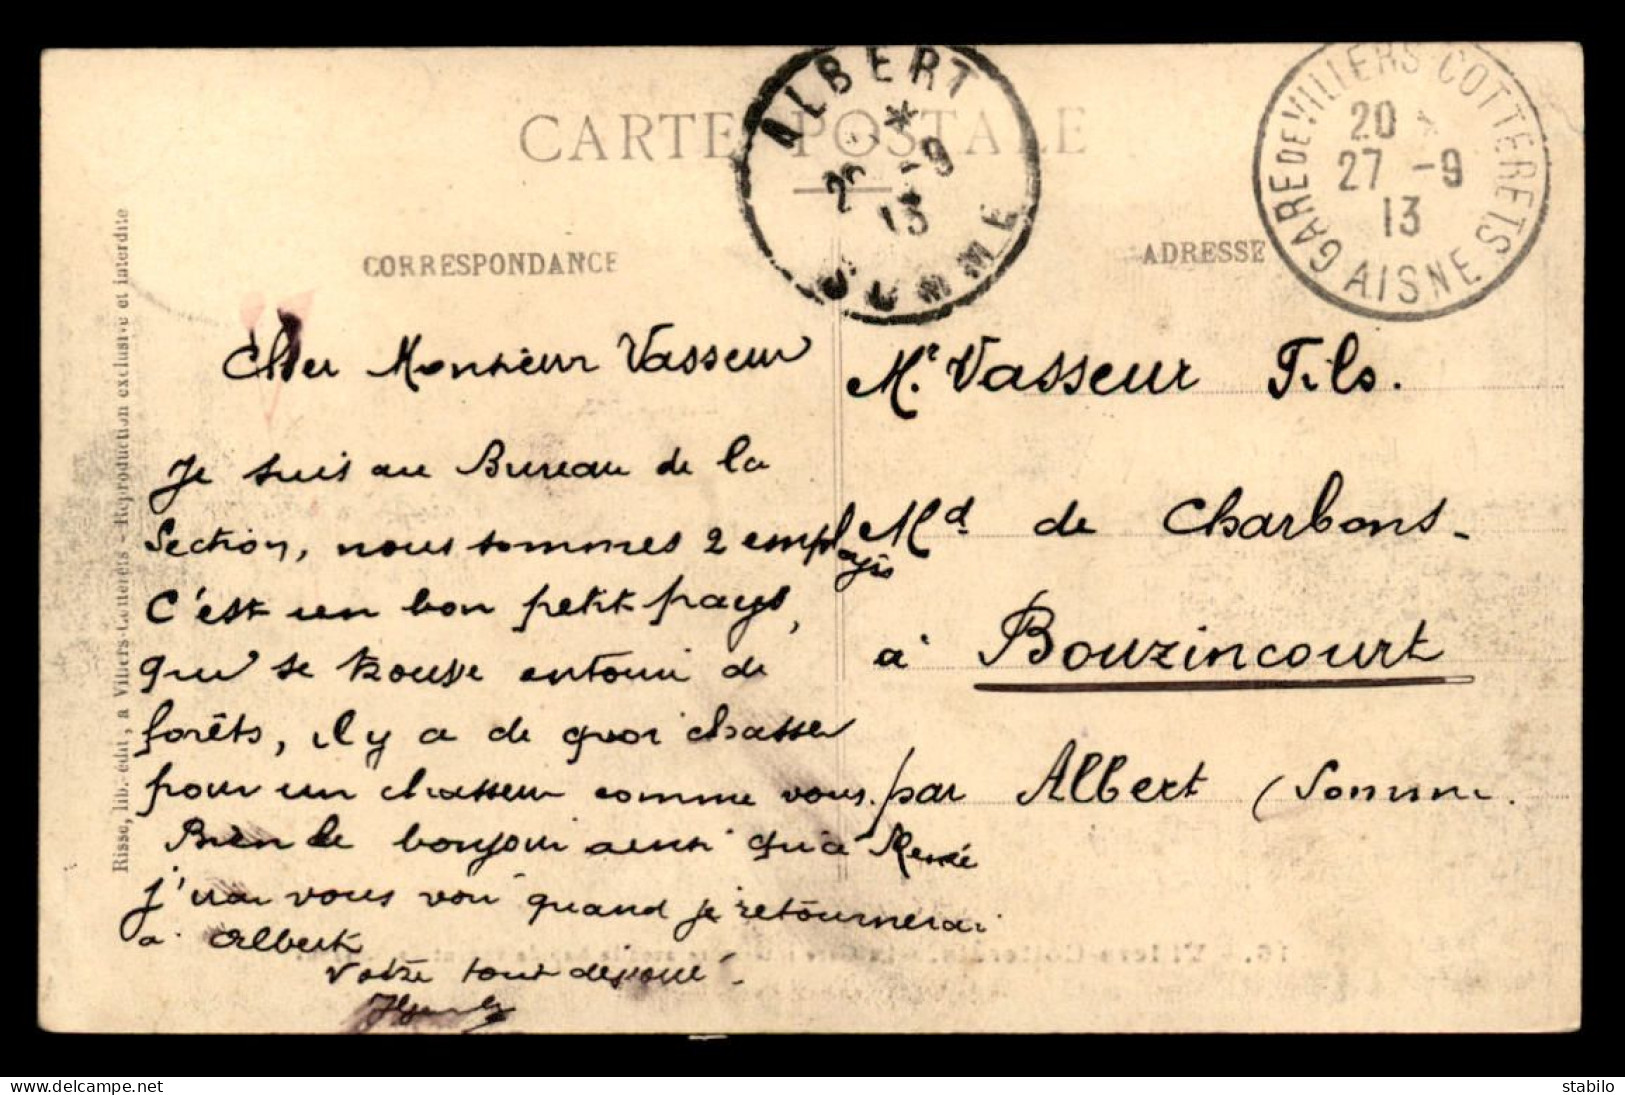 CARTE POSTALE
ALBERT
* -9
13
SOMME
GARE DE VILLERS-COTTERETS
20 *
27 -9
13
AISNE
CORRESPONDANCE
ADRESSE
Risse, lib.-édit., à Villers-Cotterêts - Reproduction exclusive et interdite
Cher Monsieur Vasseur
Je suis au Bureau de la
Section, nous sommes 2 employés
C'est un bon petit pays,
qui se trouve entouré de
forêts, il y a de quoi chasser
pour un chasseur comme vous.
Bien le bonjour ainsi qu'à Renée
j'irai vous voir quand je retournerai
à Albert
Votre tout dévoué.
Mr. Vasseur Fils.
Md. de Charbons-
à Bouzincourt
par Albert (Somme.
delcampe.net
stabilo